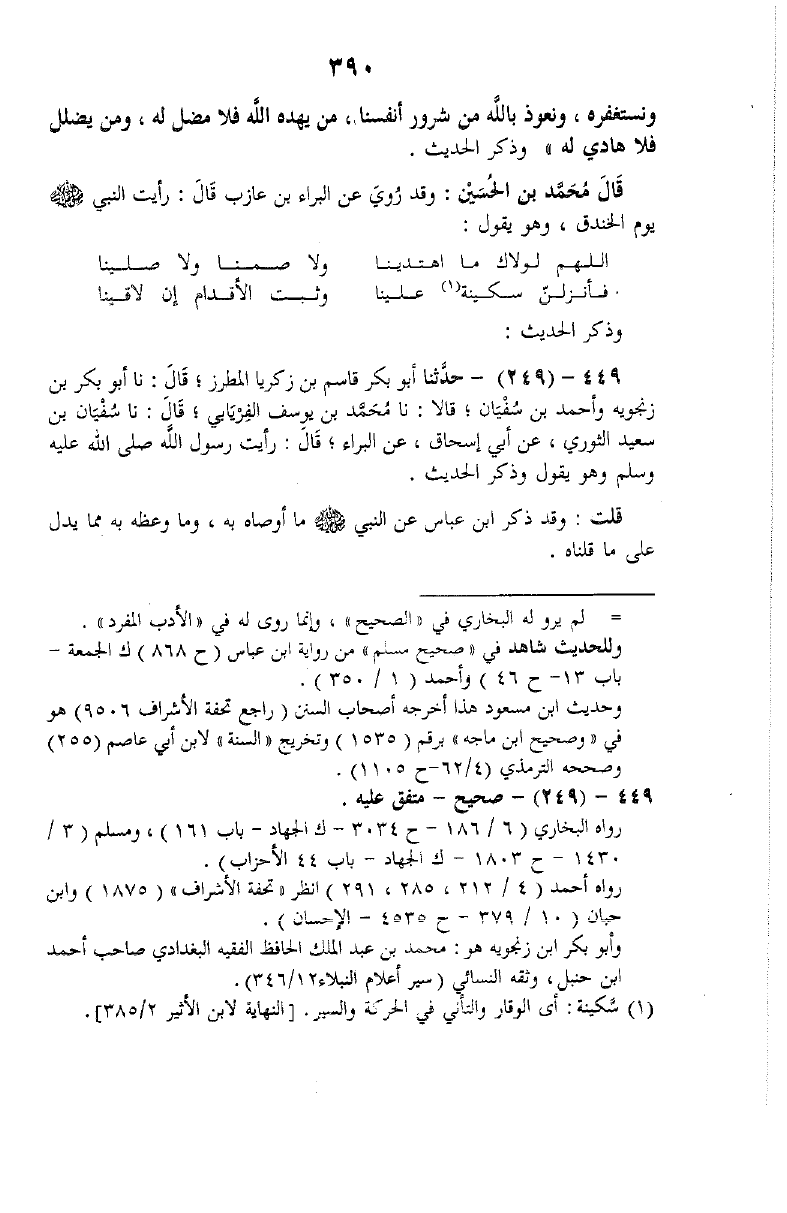 ٣٩٠
ونستغفره ، ونعوذ باللَّه من شرور أنفسنا ، من يهده اللَّه فلا مضل له ، ومن يضلل
فلا هادي له » وذكر الحديث .
قَالَ مُحَمَّد بن الحُسَيْن : وقد رُويَ عن البراء بن عازب قَالَ : رأيت النبي ﷺ
يوم الخندق ، وهو يقول :
اللـهم لولاك ما اهتدينا ولا صمنا ولا صلينا
فأنزلنّ سكينة(١) علينا وثبت الأقدام إن لاقينا
وذكر الحديث :
٤٤٩ – (٢٤٩) – حدَّثنا أبو بكر قاسم بن زكريا المطرز ؛ قَالَ : نا أبو بكر بن
زنجويه وأحمد بن سُفْيَان ؛ قالا : نا مُحَمَّد بن يوسف الفِرْيَابي ؛ قَالَ : نا سُفْيَان بن
سعيد الثوري ، عن أبي إسحاق ، عن البراء ؛ قَالَ : رأيت رسول اللَّه صلى الله عليه
وسلم وهو يقول وذكر الحديث .
قلت : وقد ذكر ابن عباس عن النبي ﷺ ما أوصاه به ، وما وعظه به مما يدل
على ما قلناه .
= لم يرو له البخاري في «الصحيح» ، وإنما روى له في «الأدب المفرد» .
وللحديث شاهد في «صحيح مسلم» من رواية ابن عباس ( ح ٨٦٨ ) ك الجمعة –
باب ١٣– ح ٤٦ ) وأحمد ( ١ / ٣٥٠ ) .
وحديث ابن مسعود هذا أخرجه أصحاب السنن ( راجع تحفة الأشراف ٩٥٠٦) هو
في « وصحيح ابن ماجه» برقم ( ١٥٣٥ ) وتخريج «السنة» لابن أبي عاصم (٢٥٥)
وصححه الترمذي (٦٢/٤–ح ١١٠٥) .
٤٤٩ – (٢٤٩) – صحيح – متفق عليه .
رواه البخاري ( ٦ / ١٨٦ – ح ٣٠٣٤ – ك الجهاد – باب ١٦١ ) ، ومسلم ( ٣ /
١٤٣٠ – ح ١٨٠٣ – ك الجهاد – باب ٤٤ الأحزاب) .
رواه أحمد ( ٤ / ٢١٢ ، ٢٨٥ ، ٢٩١ ) انظر «تحفة الأشراف» ( ١٨٧٥ ) وابن
حبان ( ١٠ / ٣٧٩ – ح ٤٥٣٥ – الإحسان ) .
وأبو بكر ابن زنجويه هو : محمد بن عبد الملك الحافظ الفقيه البغدادي صاحب أحمد
ابن حنبل ، وثقه النسائي ( سير أعلام النبلاء٣٤٦/١٢).
(١) سَّكينة : أى الوقار والتأني في الحركة والسير . [النهاية لابن الأثير ٣٨٥/٢].